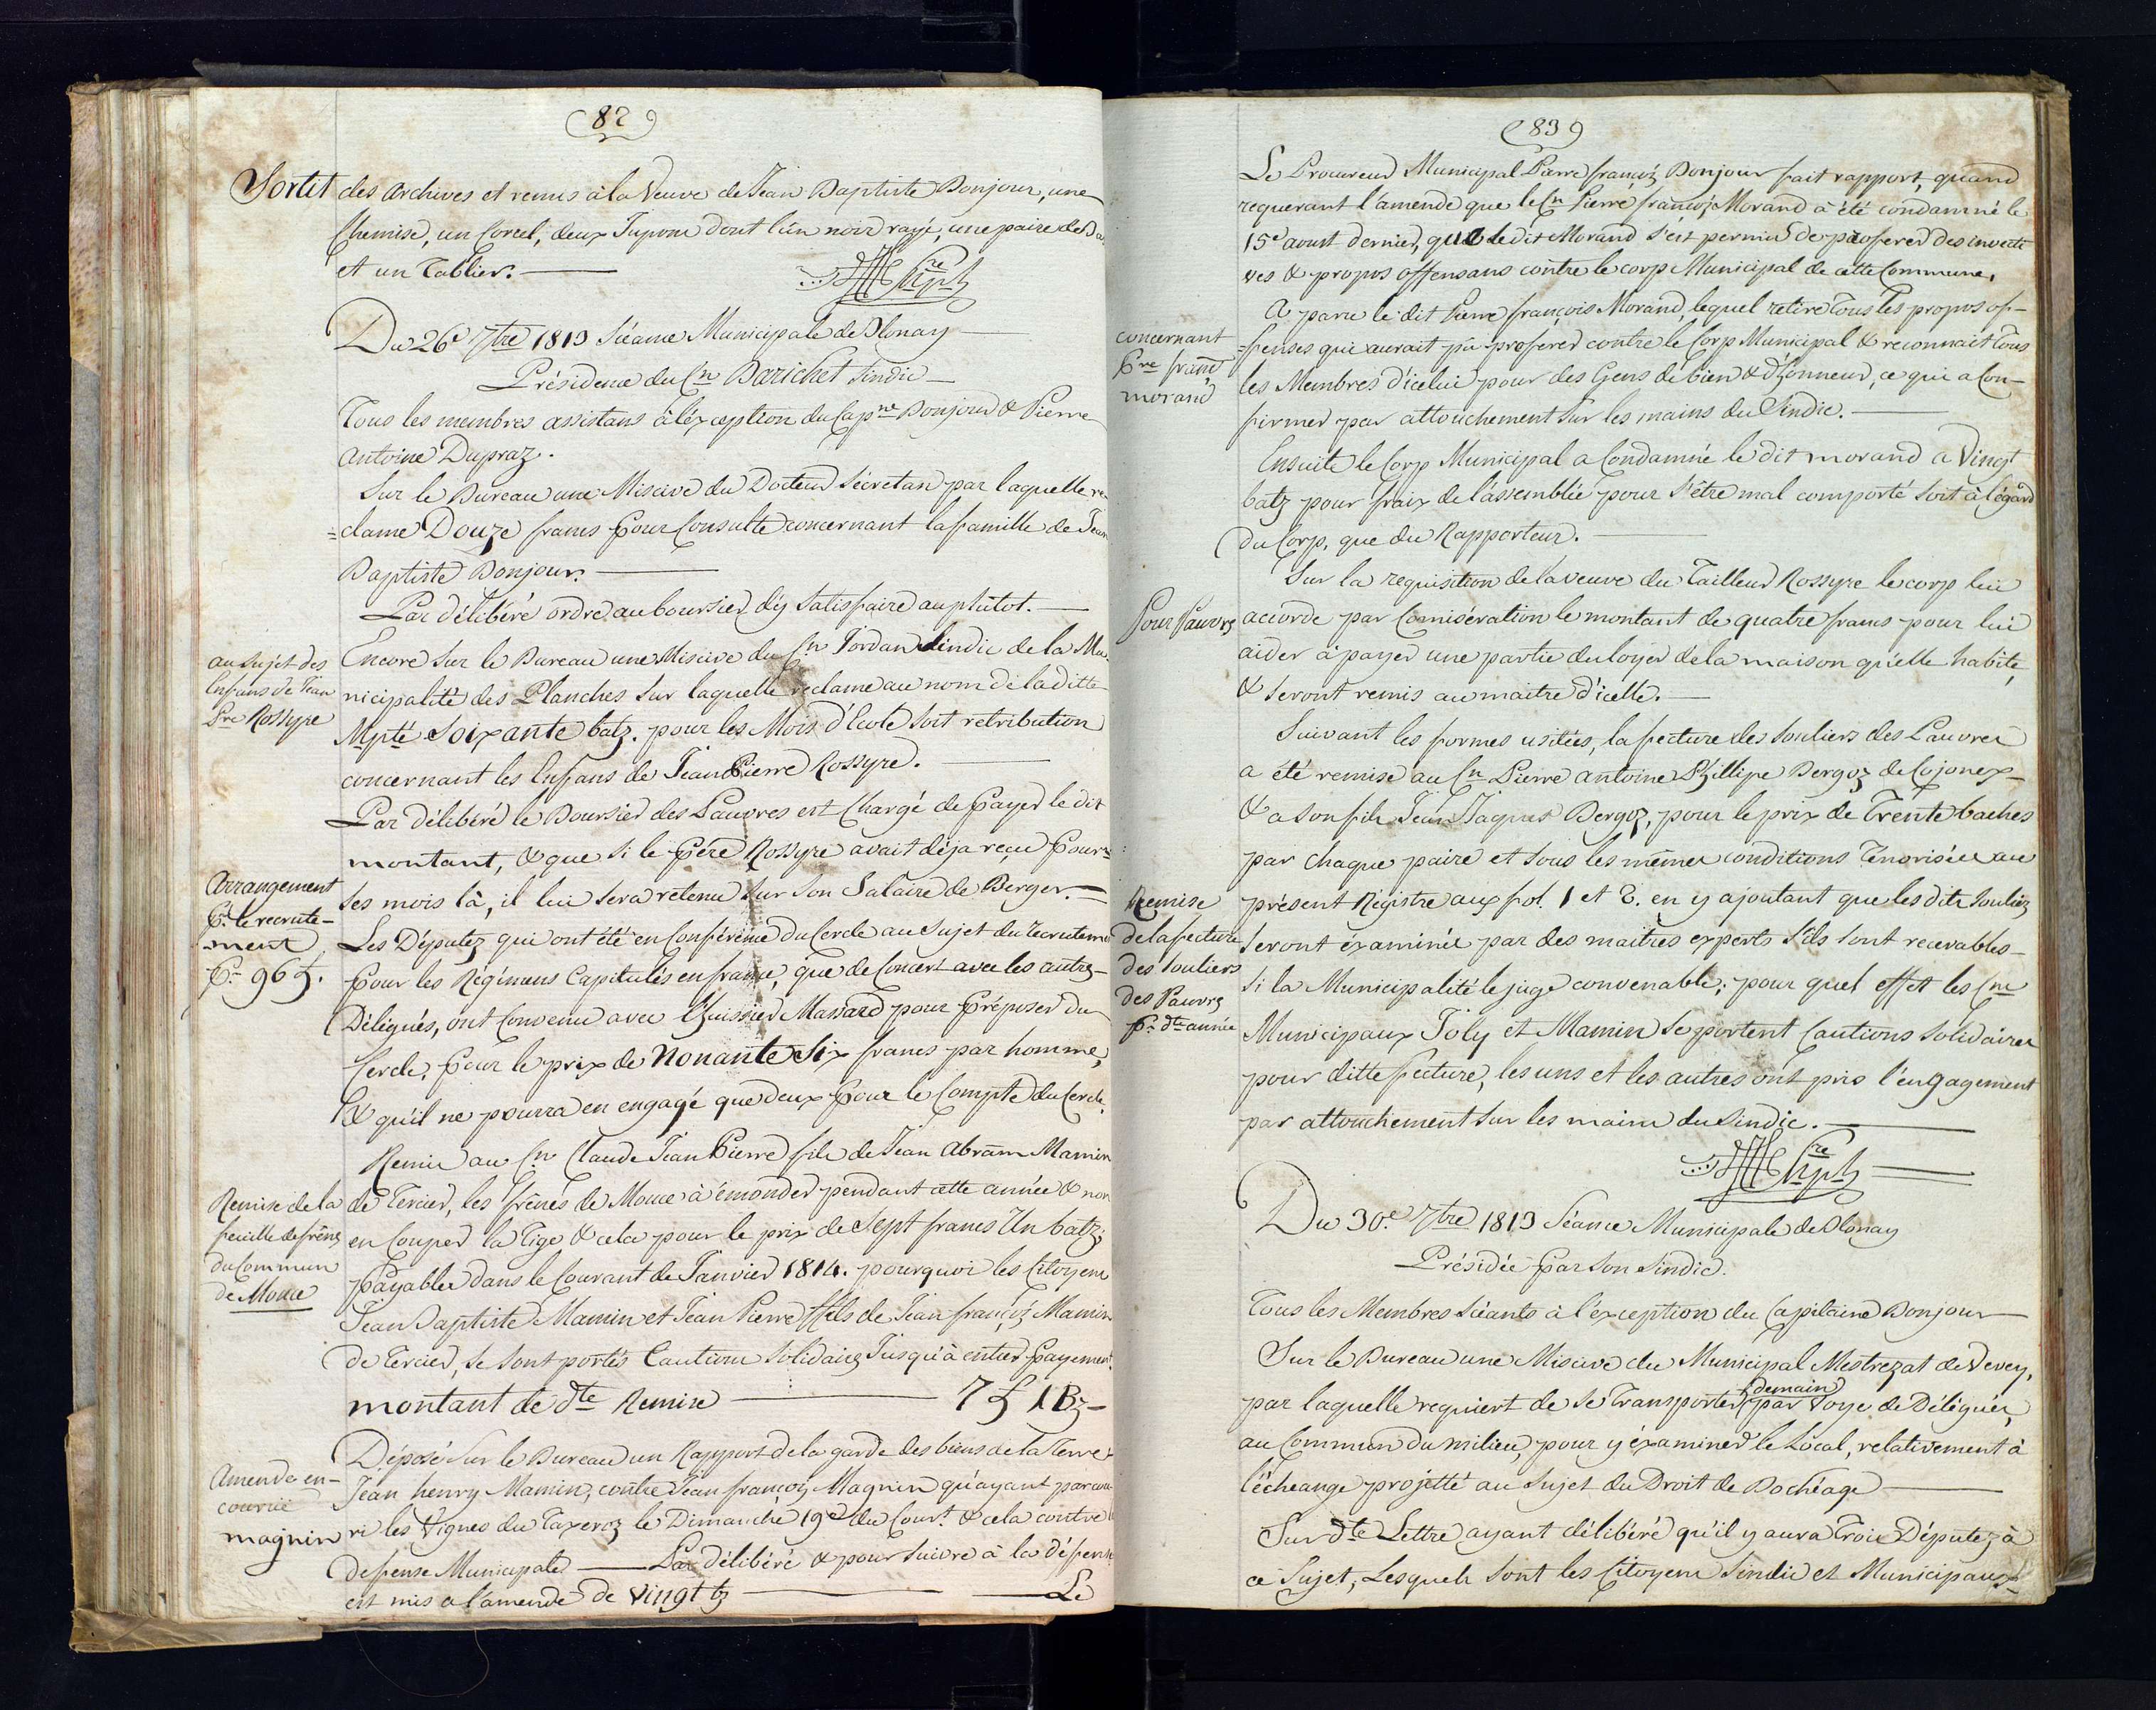 82
Sortit des archives et remis à la Veuve de Jean Baptiste Bonjour, une
Chemise, un Corcet, deux Jupons dont l'un noir rayé, une paire de
et un Tablier.
Du 26e 7bre 1813 Séance Municipale de Blonay
Présidence du Cn Barichet Sindic
Tous les membres assistans à l'exception du Capne Bonjour & Pierre
Antoine Dupraz.
Sur le Bureau une Miscive du Docteur Secretan par laquelle re-
=clame Douze francs pour Consulte concernant la famille de Jean
Baptiste Bonjour.
Par délibéré ordre au boursier d'y satisfaire au plutot.
au sujet des
Enfans de Jean
Pre Rossyre
Encore sur le Bureau une Miscive du Cn Jordan Sindic de la Mu-
nicipalité des Planches sur laquelle reclame au nom de la ditte
Mpté Soixante batz. pour les Mois d'Ecole soit retribution
concernant les Enfans de Jean Pierre Rossyre.
Par délibéré le Boursier des Pauvres est Chargé de payer le dit
montant, & que si le Pére Rossyre avait déja reçu pour
ses mois là, il lui sera retenu sur son Salaire de Berger.
Arrangement
pr. le recrute-
ment
pr. 96 f.
Les Députez qui ont été en Conférence du Cercle au sujet du recrutement
pour les Régimens Capitulés en france, que de Concert avec les autres
Déligués, ont Convenu avec l'huissier Massard pour Préposer du
Cercle, pour le prix de Nonante Six francs par homme,
& qu'il ne pourra en engagé que deux pour le Compte du Cercle.
Remise de la
feuille de frênes
du Commun
de Mouce
Remis au Cn Claude Jean Pierre fils de Jean Abram Mamin
de Tercier, les frênes de Mouce à émonder pendant cette année & non
en Couper la Tige & cela pour le prix de Sept francs Un batz;
payables dans le Courant de Janvier 1814. pourquoi les Citoyens
Jean Baptiste Mamin et Jean Pierre ffils de Jean françoz Mamin
de Tercier, se sont portés Cautions Solidaires Jusqu'à entier payement.
montant de dte Remise 7 f 1 Bz
Amende en-
courrüe
magnin
Déposé sur le Bureau un Rapport de la garde des biens de la Terre
Jean henry Mamin, contre Jean françoz Magnin qu'ayant parcou-
ri les Vignes du Taxeroz le Dimanche 19e du Court. & cela contre
defense Municipale Par délibéré & pour suivre à la défense
est mis a l'amende de vingt bz Le
83
Le Procureur Municipal Pierre françoz Bonjour fait rapport, quand
requerant l'amende que le Cn Pierre françoz Morand à été condamné le
15e aoust dernier, que le dit Morand s'est permis de proferer des invecti
ves & propos offensans contre le corp Municipal de cette Commune.
concernant
Pre franç
morand
A paru le dit Pierre françois Morand, lequel retire Tous les propos of-
=fenses qui aurait pû proferer contre le Corp Municipal & reconnait Tous
les Membres d'icelui pour des Gens de bien & d'honneur, ce qui a Con-
firmer par attouchement sur les mains du Sindic.
Ensuite le Corp Municipal a Condamné le dit morand a Vingt
batz pour fraix de l'assemblée pour s'être mal comporté soit à l'égard
du Corp, que du Rapporteur.
Pour Pauvres
Sur la requisition de la veuve du Tailleur Rossyre le corp lui
accorde par Comisération le montant de quatre francs pour lui
aider à payer une partie du loyer de la maison qu'elle habite,
& seront remis au maitre d'icelle.
Remise
de la fecture
des souliers
des Pauvres
pr. dte année
Suivant les formes usitées, la fecture des souliers des Pauvres
a été remise au Cn Pierre antoine Phillipe Bergoz de Cojonex
& a son fils Jean Jaques Bergoz, pour le prix de Trente baches
par chaque paire et sous les mêmes conditions Tenorisées au
présent Régistre aux fol. 1 et 2. en y ajoutant que les dits souliez
seront éxaminés par des maitres experts s'ils sont recevables
si la Municipalité le juge convenable; pour quel effet les Cns
Municipaux Joly et Mamin se portent Cautions solidaires
pour ditte fecture, les uns et les autres ont pris l'engagement
par attouchement sur les mains du Sindic.
Du 30e. 7bre 1813 Séance Municipale de Blonay
Présidée par son Sindic.
Tous les Membres séants à l'exception du Capitaine Bonjour
Sur le Bureau une Miscive du Municipal Mestrezat de Vevey,
par laquelle requiert de se Transporter demain par Voye de Déligués,
au Commun du milieu, pour y éxaminer le Local, relativement à
l'écheange projetté au sujet du Droit de Bochéage
Sur dte Lettre ayant délibéré qu'il y aura Trois Députez à
ce Sujet, Lesquels sont les Citoyens Sindic et Municipaux